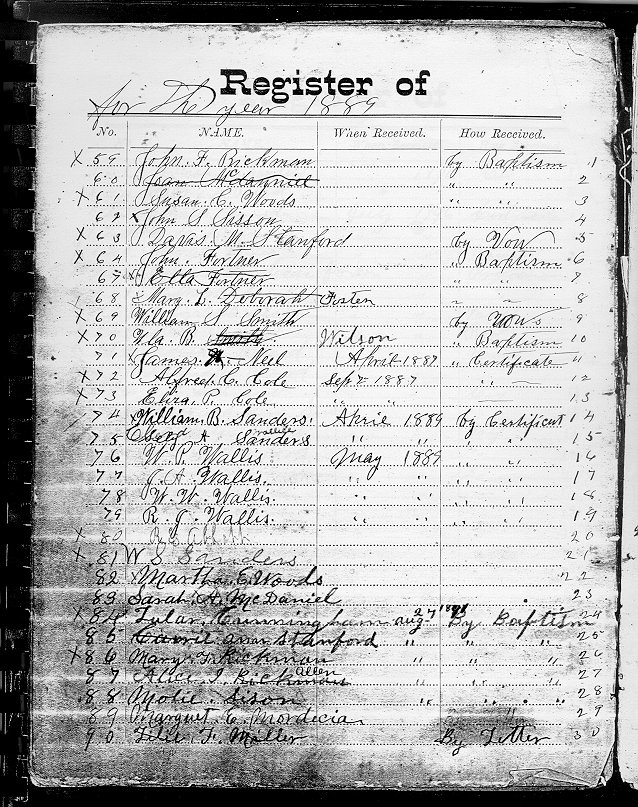 Register of
for The year 1889
No. NAME. When Received. How Received.
X 59 John. F. Rickman by Baptism 1
60 Joan McDanniel " " 2
X 61 Susan. C. Woods " " 3
62 x John S Sisson 4
X 63 Davis. M. Stanford by Vow 5
X 64 John. Fortner " Baptism 6
67 x Ella Fortner " " 7
68 Mary. L. Deborah Foster " " 8
X 69 William S. Smith by Vows 9
X 70 B. Smith Wilson " Baptism 10
71 x James. Neil April 1887 " Certificate 11
X 72 Alfred. C. Cole Sept 1887 " 12
X 73 Eliza. P. Cole " " 13
74 William. B. Sanders. Aprie 1889 by Certificat 14
75 A Sanders " " " " 15
76 W. P. Wallis May 1889 " " 16
77 J. A. Wallis. " " " " 17
78 W. W. Wallis. " " " " 18
79 R. J. Wallis. " " " " 19
X 80 20
X 81 W S Sanders 21
82 Martha. C. Woods 22
83 Sarah. A. McDaniel 23
X 84 Lular. Cunningham aug 27 By Baptism 24
85 Stanford " " " 25
X 86 Mary. F. Rickman " " " 26
87 Alice. J. Rickman Allen " " " 27
88 Molie. Sison " " " 28
89 Marguet. C. Mordecia " 29
90 F. Miller By Letter 30